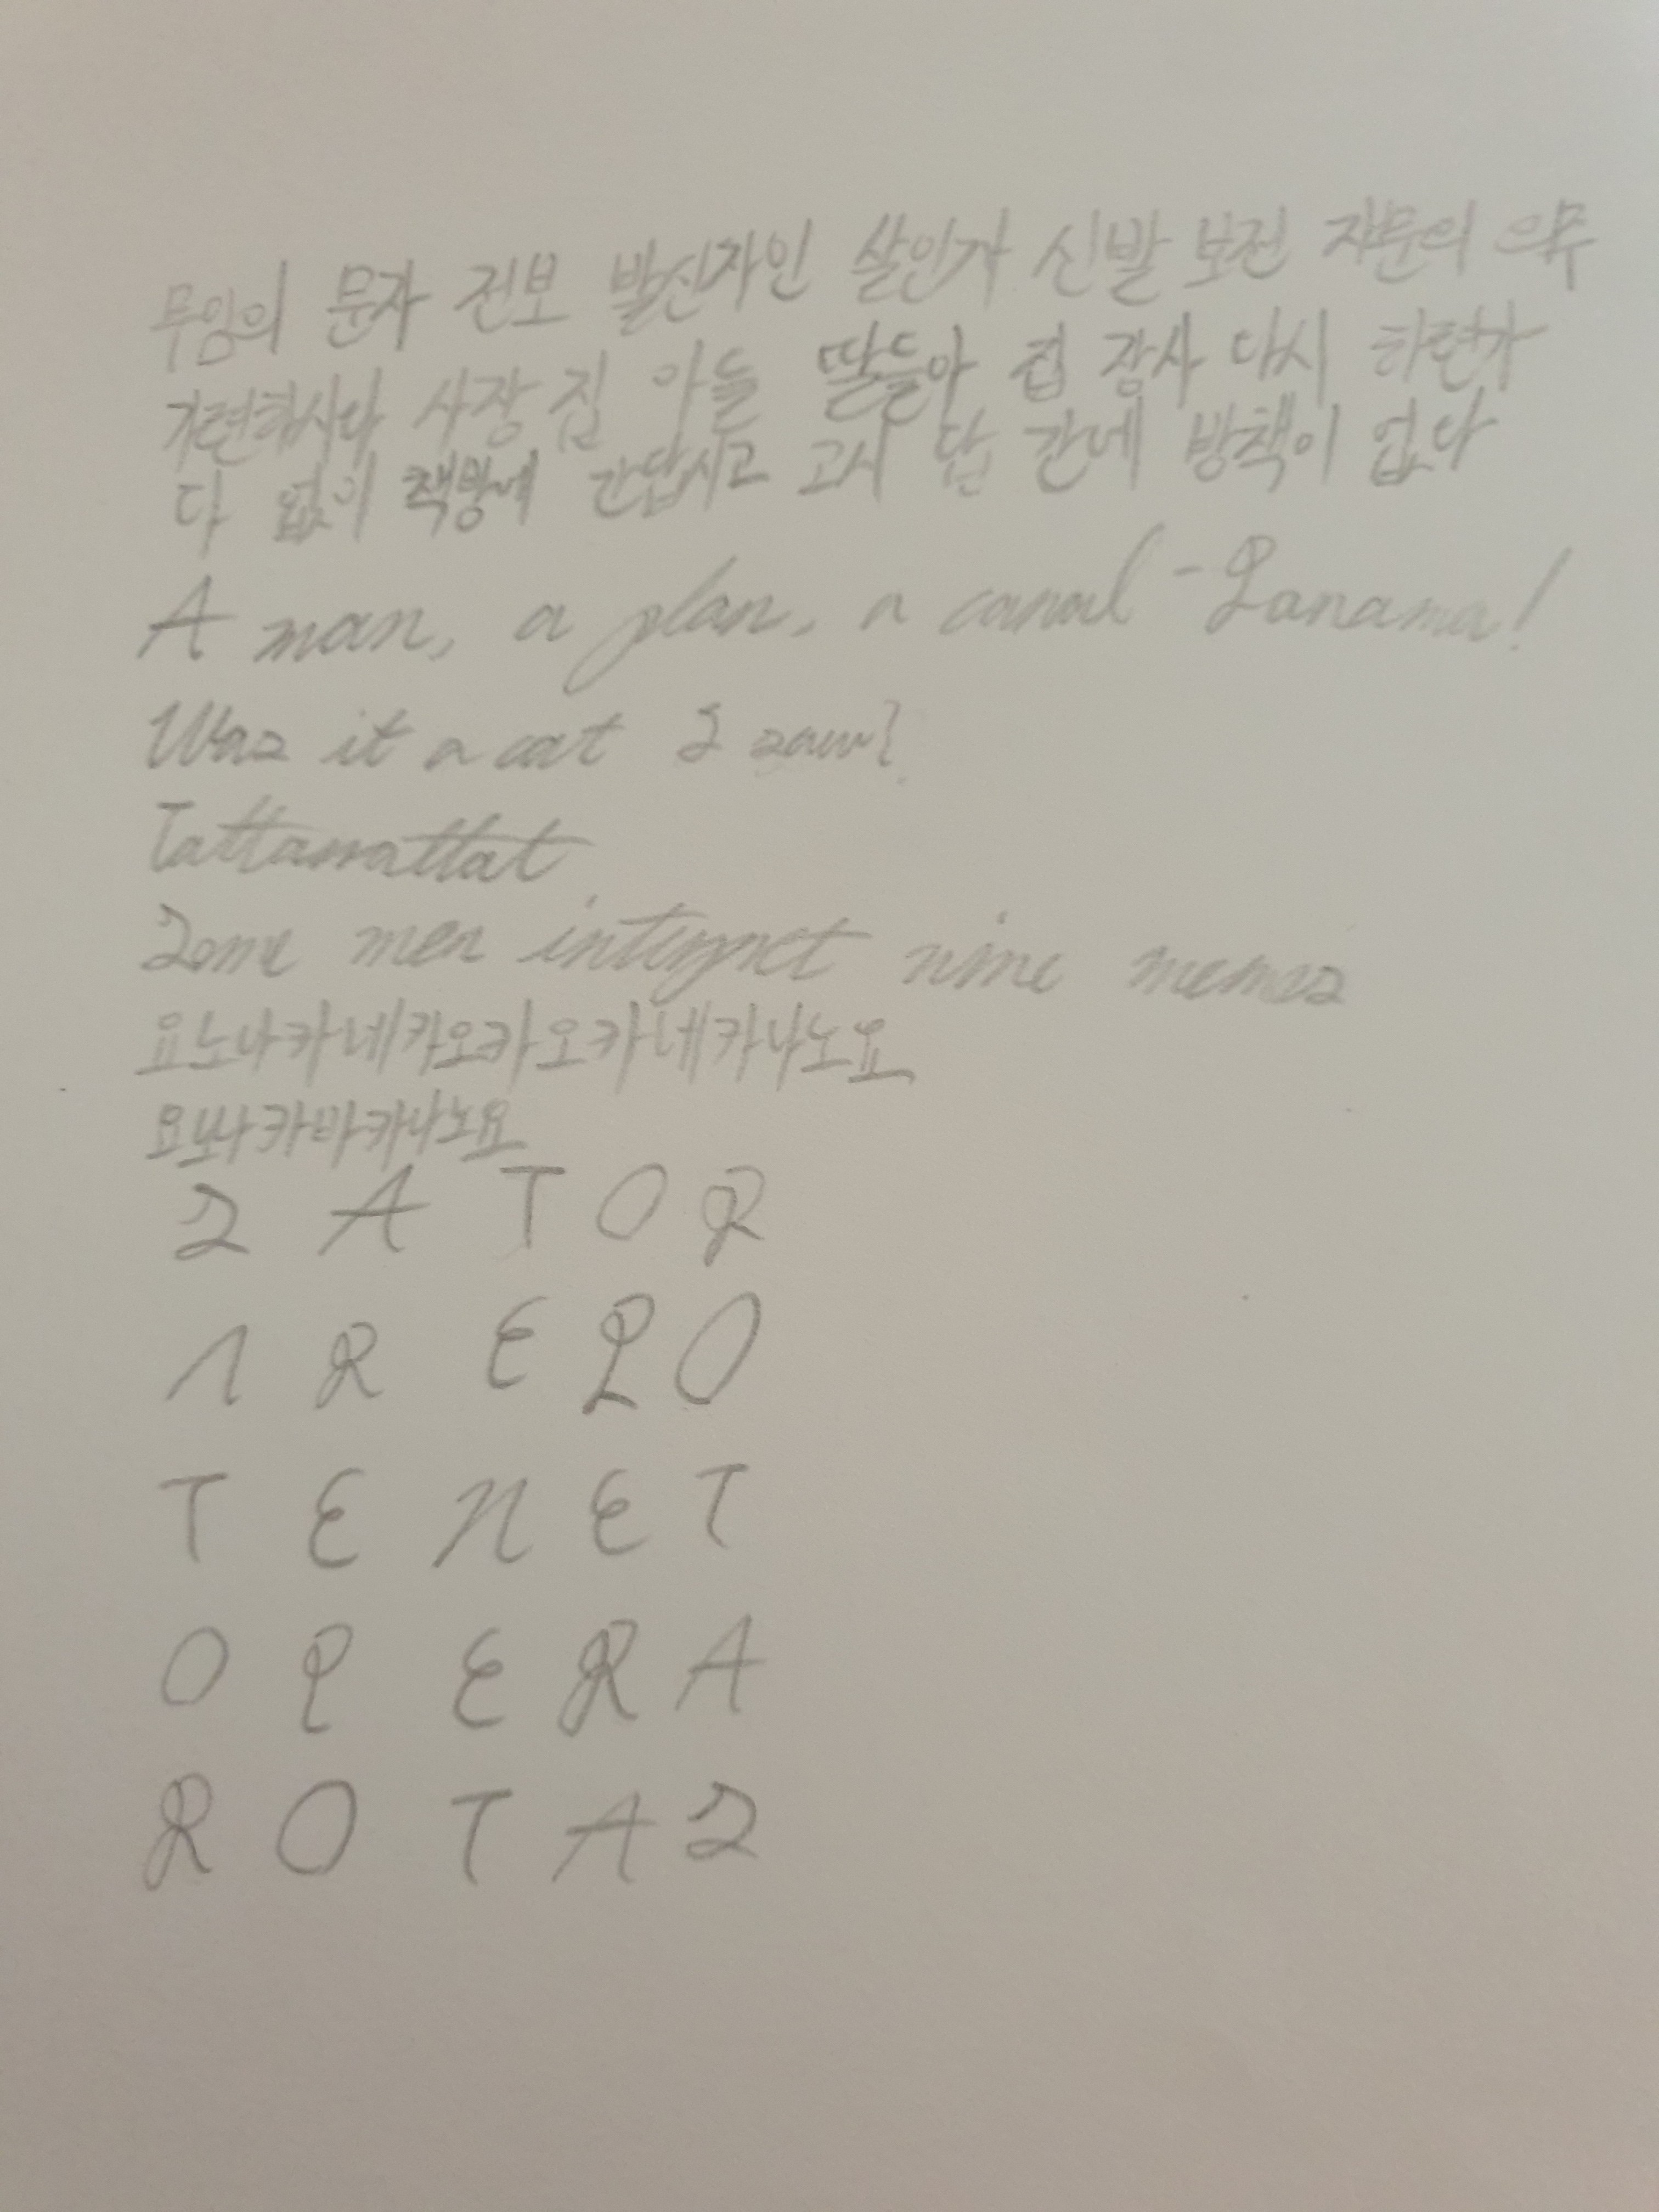 무임의 문자 전보 발신자인 살인가 신발 보전 자문의 으무
가련하시다 사장 집 아들 딸들아 집 장사 다시 하련가
다 없이 책방에 간답시고 고시 답 간에 방책이 없다
A man, a plan, a canal - Panama!
Was it a cat I saw?
Tattarrattat
Some men interpret nine memos
요노나카네카오카오카네카나노요
요노나카바카나노요
S A T O R
A R E P O
T E N E T
O P E R A
R O T A S